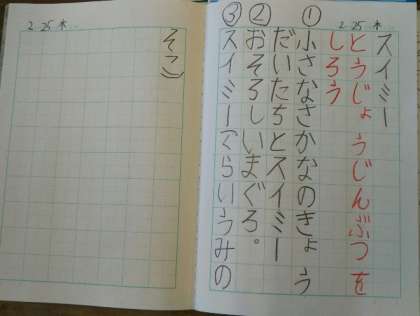 2/25 木
スイミー
とうじょうじんぶつを
しろう
① 小さなさかなのきょう
だいたちとスイミー
② おそろしいまぐろ。
③ スイミー(くらいうみの
2/25 木
そこ)